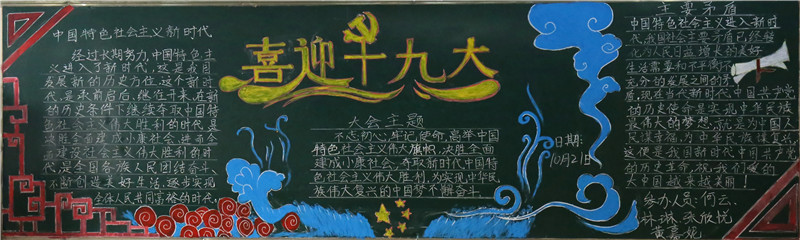 中国特色社会主义新时代
经过长期努力,中国特色主
义进入了新时代,这是我国
发展新的历史方位这个新时
代,是承前启后、继往开来、在新
的历史条件下继续夺取中国特
色社会主义伟大胜利的时代是
决胜全面建成小康社会、进而全
面建设社会主义伟大胜利的时
代,是全国各族人民团结奋斗、
不断创造美好生活、逐步实现
全体人民共同富裕的时代!
喜迎十九大
大会主题
不忘初心,牢记使命,高举中国
特色社会主义伟大旗帜,决胜全面
建成小康社会,夺取新时代中国特
色社会主义伟大胜利,为实现中华民
族伟大复兴的中国梦不懈奋斗。
日期:
10月21日
主要矛盾
中国特色社会主义进入新时
代,我国社会主要矛盾已经转
化为人民日益增长的美好
生活需要和不平衡不
充分的发展之间的矛
盾,现在当代新时代中国共产党
的历史使命是实现中华民族
最伟大的梦想。
这便是我国新时代中国共产党
的历史革命,祝我们
大中国越来越美丽!
参办人员:何云、
林琳、张欣悦
黄嘉龙